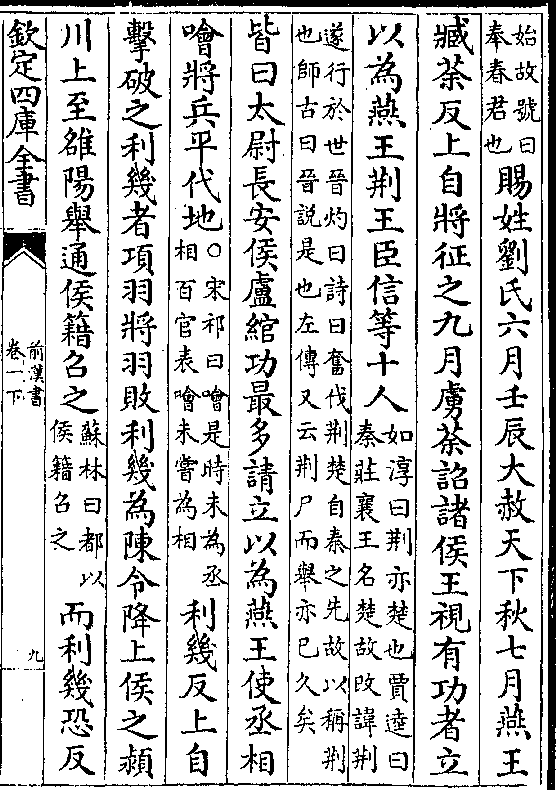 始故號曰
奉春君也
賜姓劉氏六月壬辰大赦天下秋七月燕王
臧荼反上自將征之九月虜荼詔諸侯王視有功者立
以為燕王荆王臣信等十人
如淳曰荆亦楚也賈逵曰
秦莊襄王名楚故改諱荆
遂行於世晉灼曰詩曰奮伐荆楚自秦之先故以稱荆
也師古曰晉説是也左傳又云荆尸而舉亦已久矣
皆曰太尉長安侯盧綰功最多請立以為燕王使丞相
噲將兵平代地
○宋祁曰噲是時未為丞
相百官表噲未嘗為相
利幾反上自
擊破之利幾者項羽將羽敗利幾為陳令降上侯之潁
川上至雒陽舉通侯籍召之
蘇林曰都以
侯籍召之
而利幾恐反
欽定四庫全書
前漢書
卷一下
九